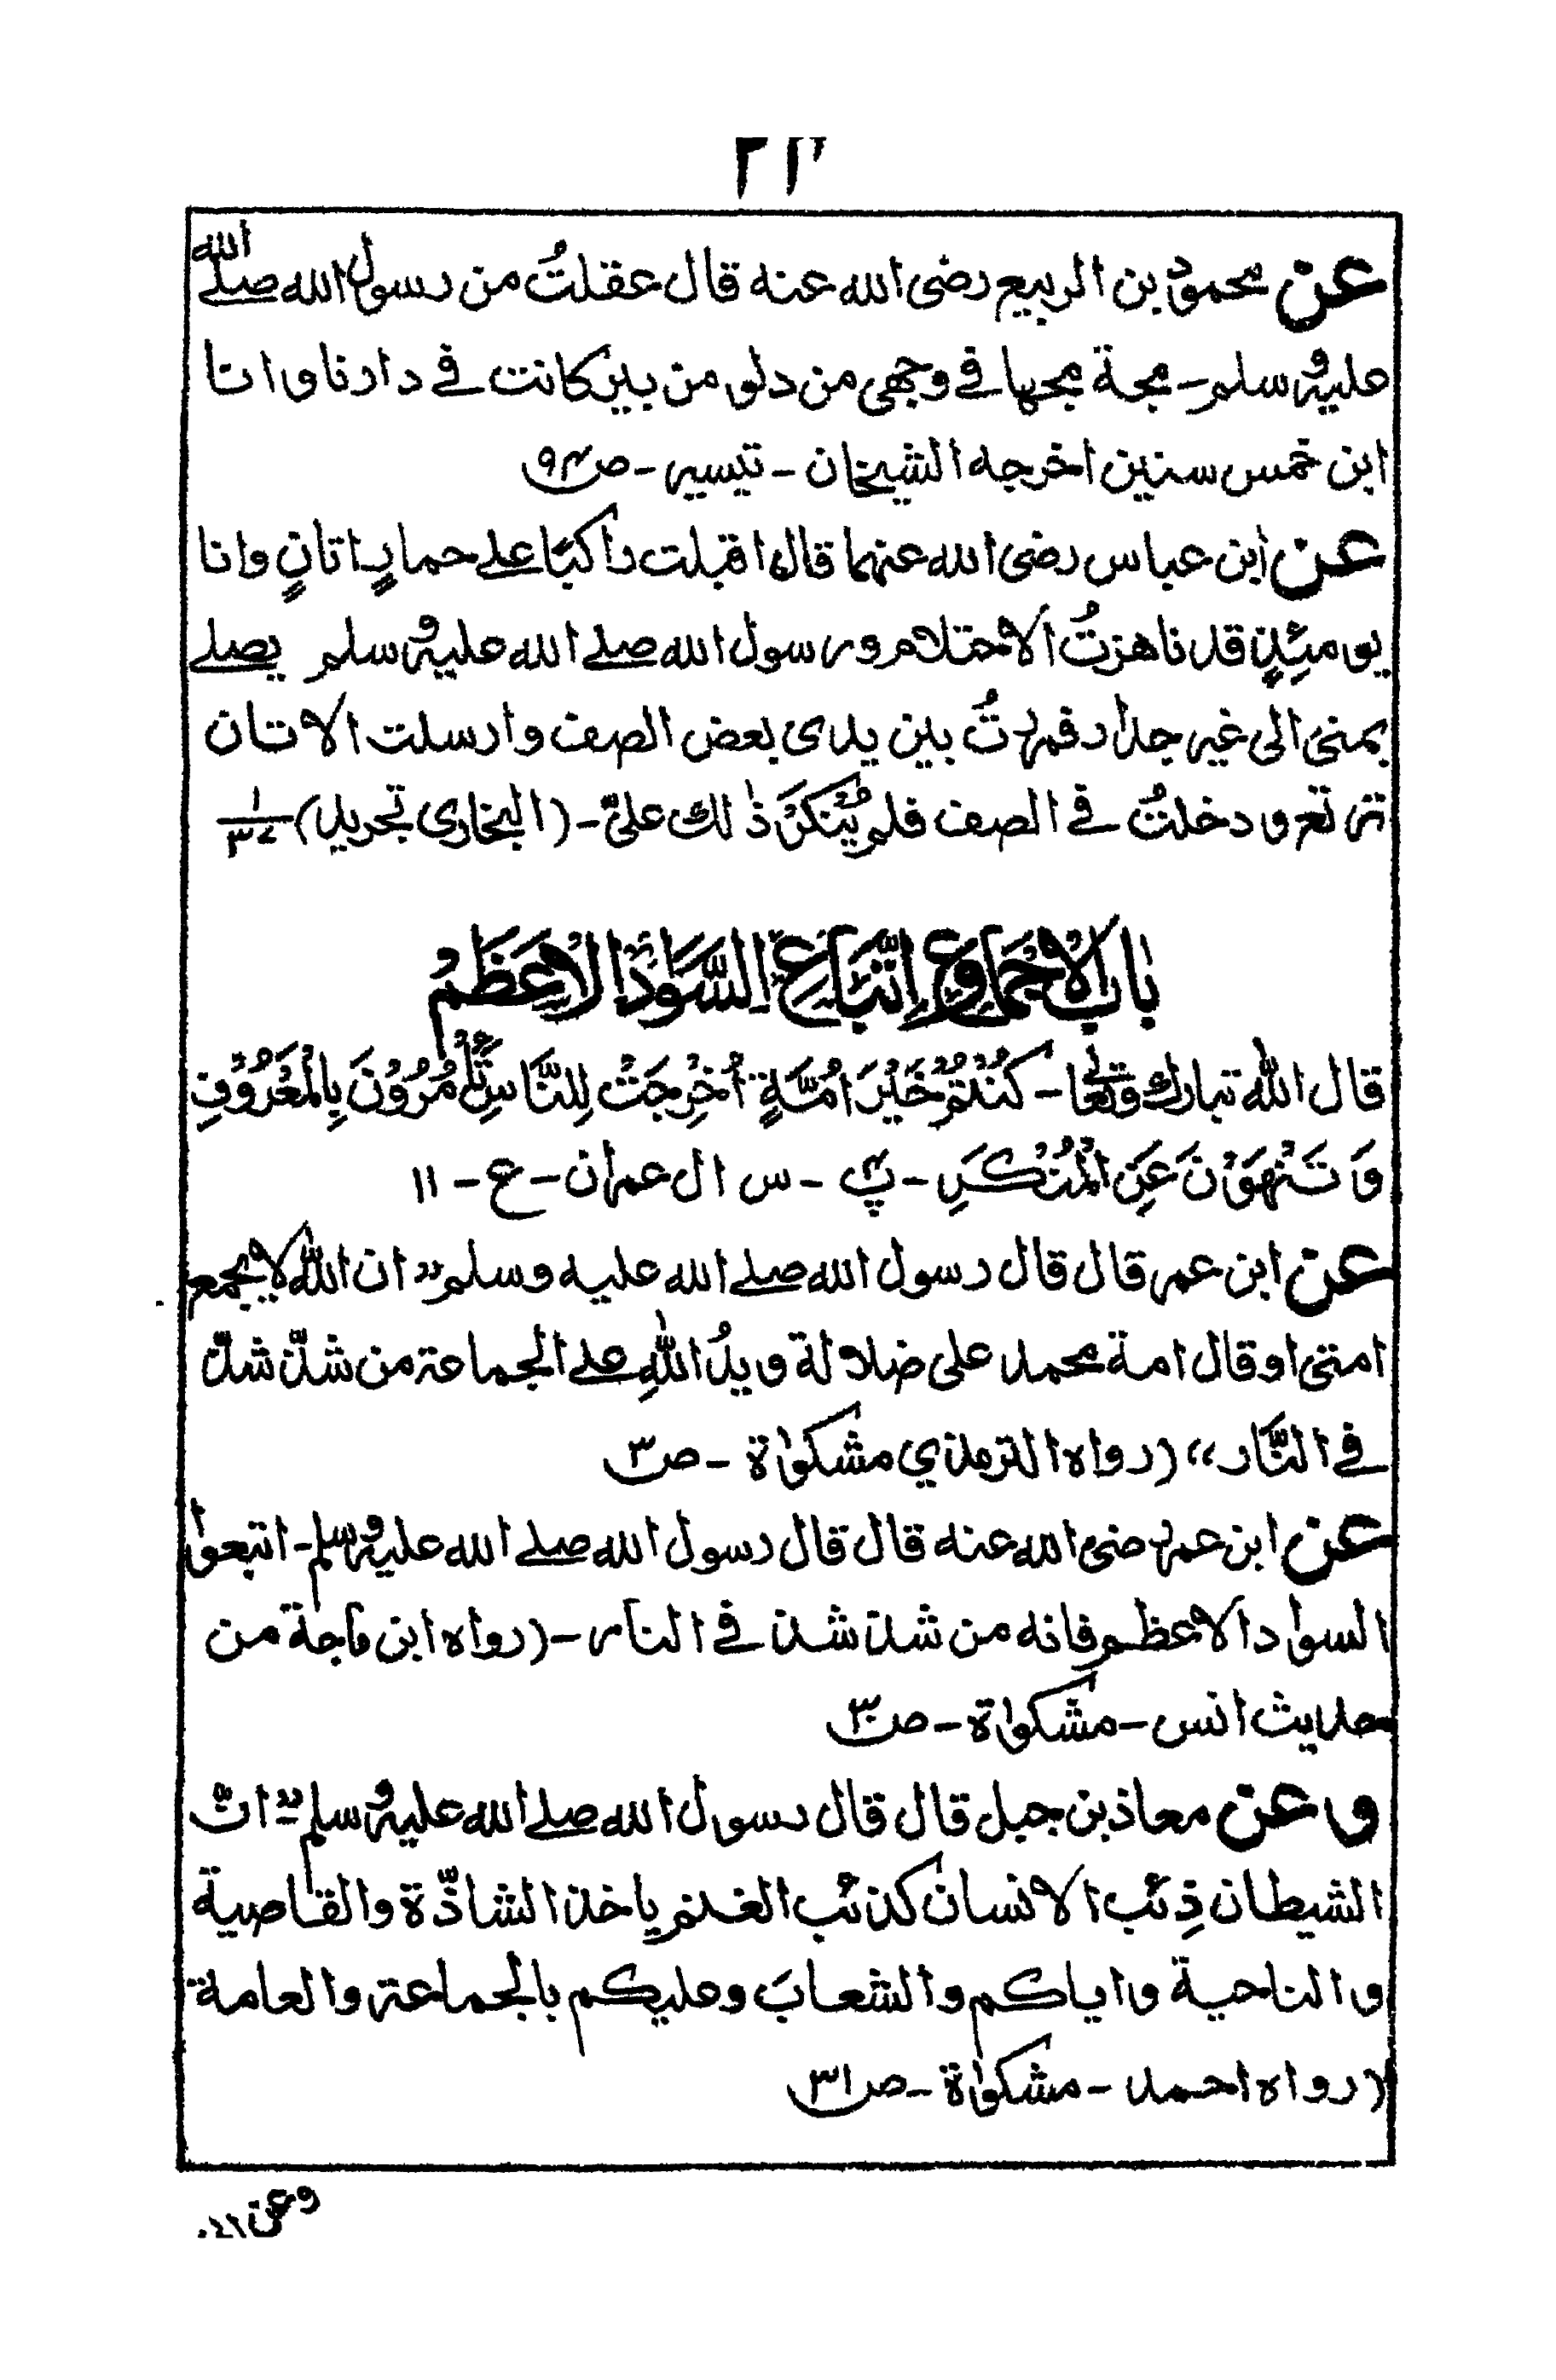 عن محمود بن الربيع رضى الله عنه قال عقلتُ من رسول الله صلے الله
عليه وسلم ـ مجة مجها فے وجهى من دلو من بير كانت فے دارنا وانا
ابن خمس سنين اخرجه الشيخان ـ تيسير ـ ص
عن ابن عباس رضى الله عنهما قال اقبلت راكبًا علے حمارٍ اتانٍ وانا
يومئِذٍ قد ناهزتُ الاحتلام ورسول الله صلے الله عليه وسلم يصلے
بمنى الى غير جدار فمررتُ بين يدى بعض الصف وارسلت الاتان
ترتع ودخلتُ فے الصف فلم يُنكَر ذٰلك علىّ ـ (البخارى تجريد)
باب الاجماع و اِتّبَاعِ السَّوَادِ الاَعْظَمْ
قال الله تبارك وتعالى ـ كُنْتُمْ خَيْرَ اُمَّةٍ اُخْرِجَتْ لِلنَّاسِ تَأْمُرُوْنَ بِالْمَعْرُوْفِ
وَتَنْهَوْنَ عَنِ الْمُنْكَرِ ـ پ۴ ـ س ال عمران ـ ع ـ ۱۱
عن ابن عمر قال قال رسول الله صلے الله عليه وسلم " ان الله لا يجمع
امتى او قال امة محمد على ضلالة ويدُ اللهِ علے الجماعة من شذّ شذّ
فے النَّار" (رواه الترمذي مشكوٰة ـ ص۳۰
عن ابن عمر رضى الله عنه قال قال رسول الله صلے الله عليه وسلم ـ اتبعوا
السواد الاعظم فانه من شذ شذ فے النار ـ (رواه ابن ماجة من
حديث انس ـ مشكوٰة ـ ص۳۰
وعن معاذ بن جبل قال قال رسول الله صلے الله عليه وسلم " انّ
الشيطان ذِئب الانسان كذئب الغنم ياخذ الشاذّة والقاصية
والناحية واياكم والشعابَ وعليكم بالجماعة والعامة
(رواه احمد ـ مشكوٰة ـ ص۳۱
وعن